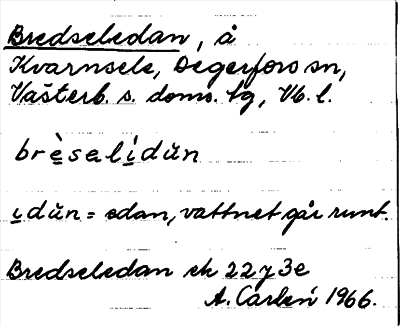 Bredseledan, å
Kvarnsele, Degerfors sn,
Västerb. s. doms. tg, Vb. l.
brèsalídŭn
ıdŭn = edan, vattnet går runt.
Bredseledan ek 22 J 3e
A. Carlén 1966.